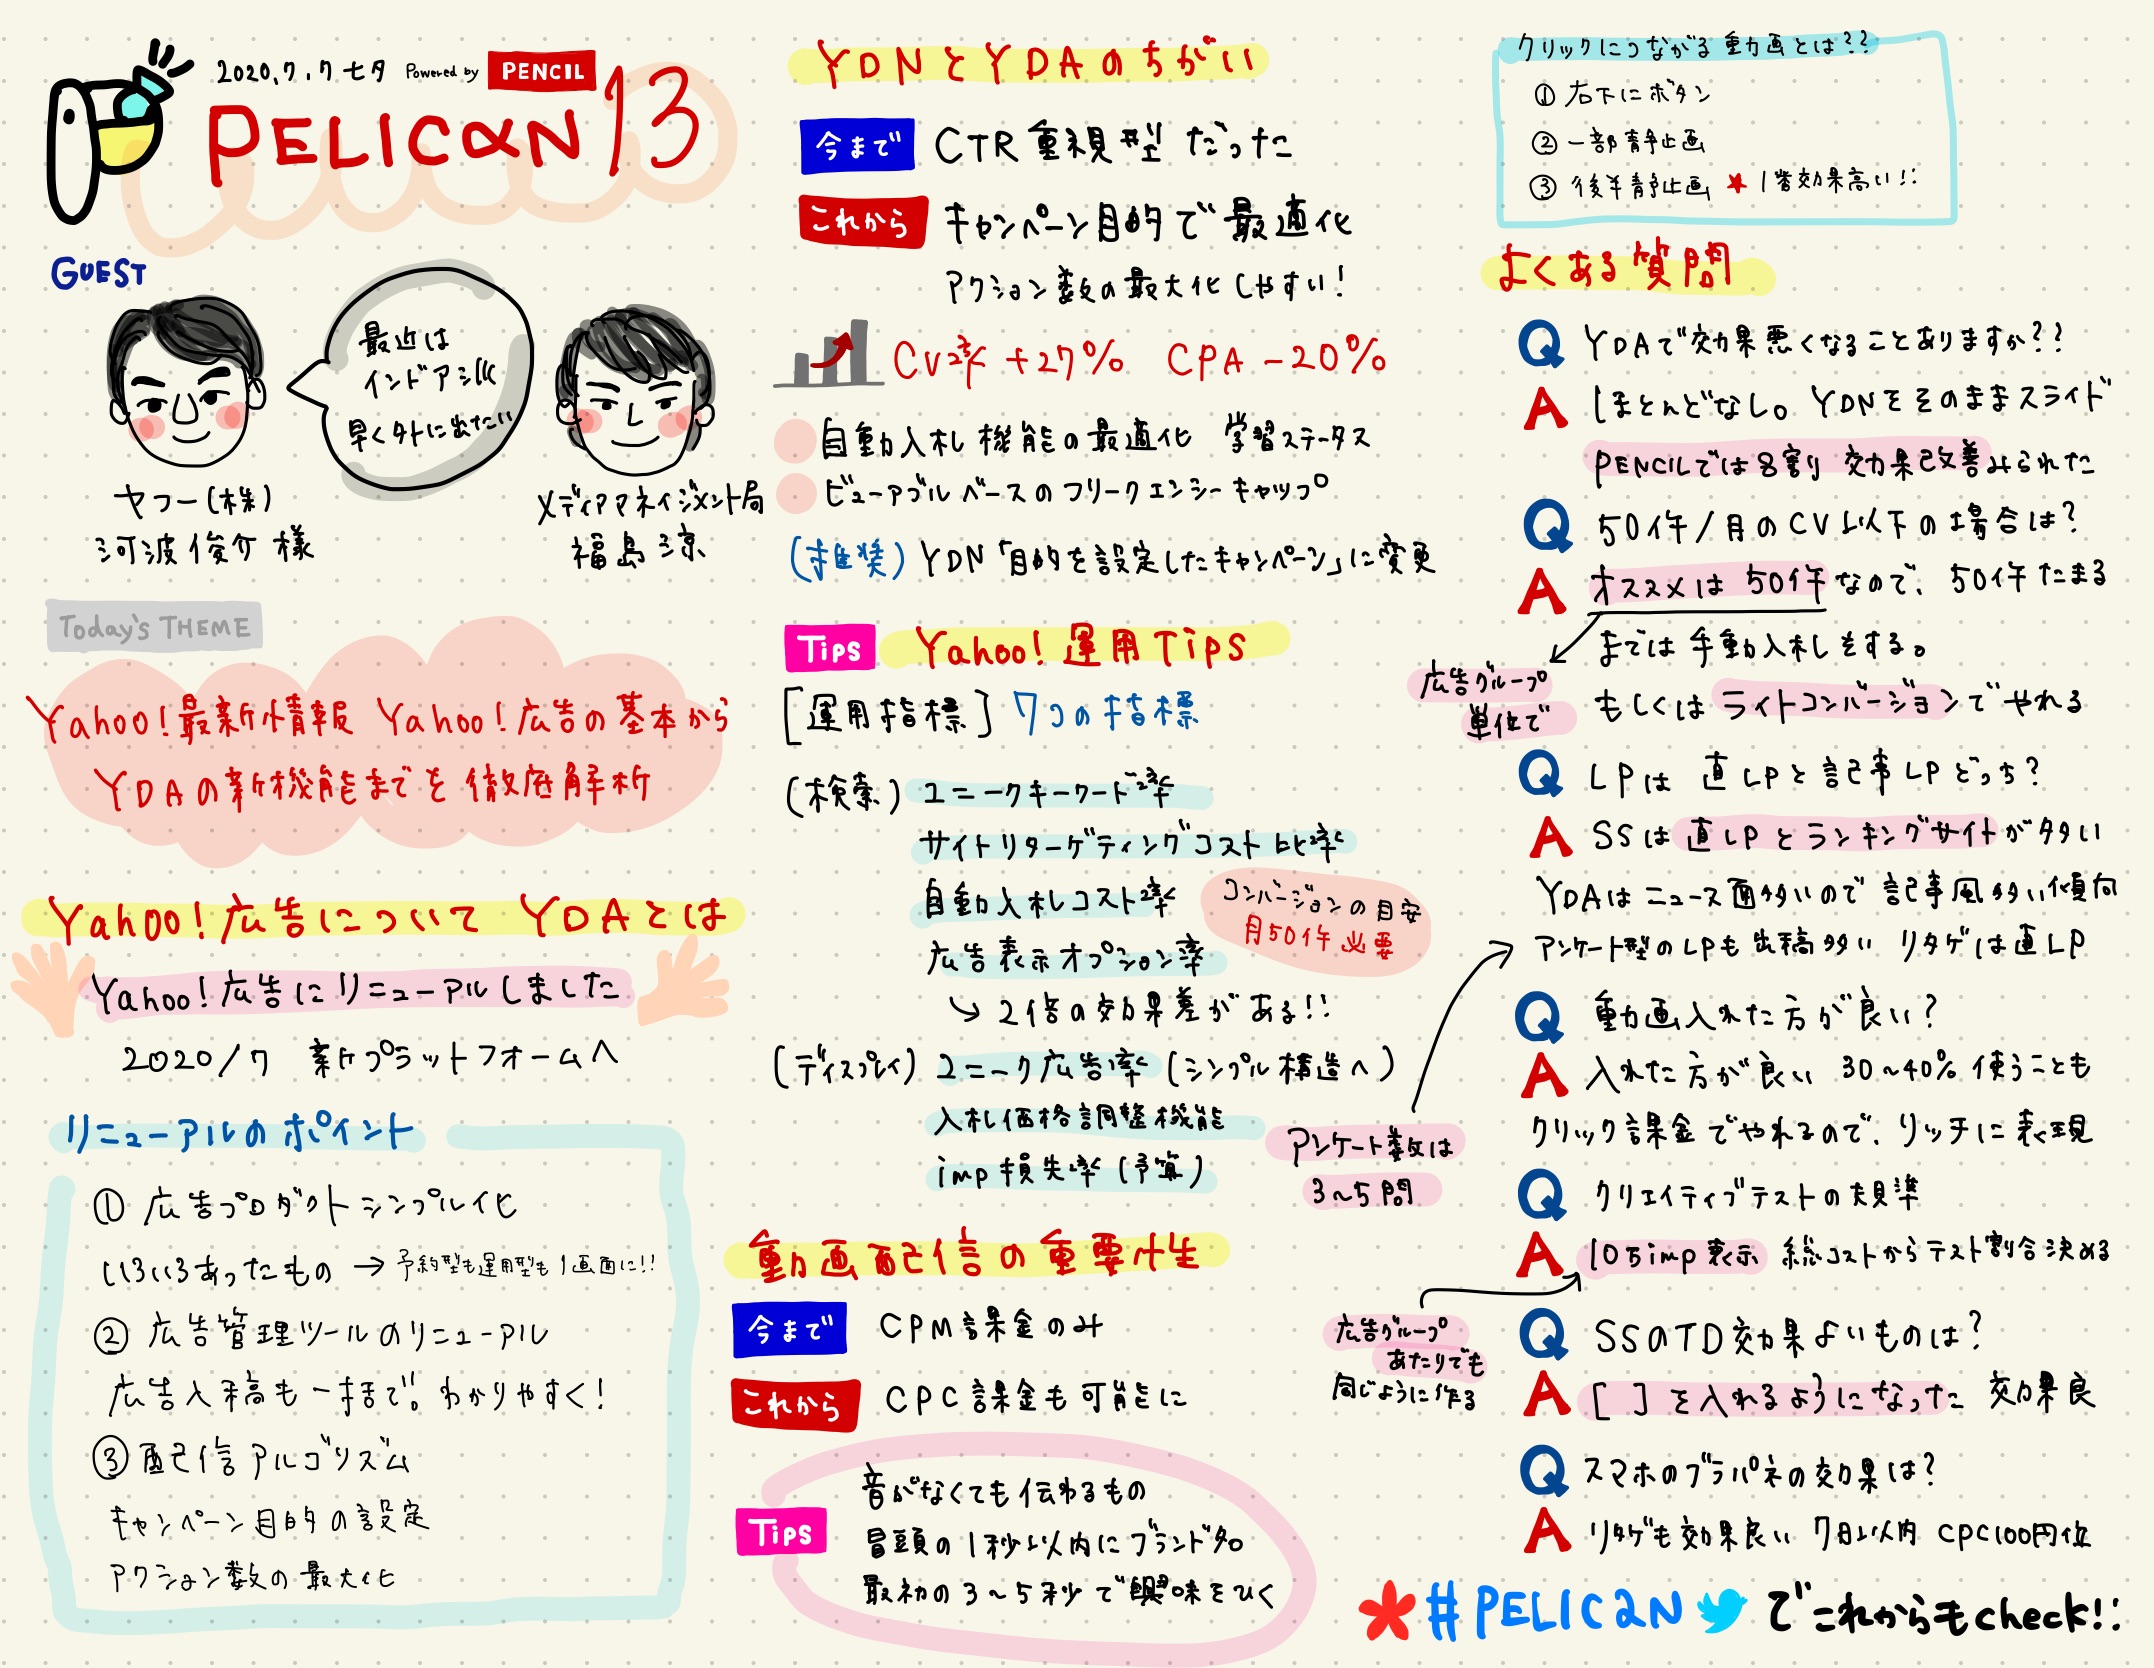 2020.7.7 七夕 Powered by PENCIL
PELICAN 13
GUEST
最近は
インドア派
早く外に出たい
ヤフー(株)
河波俊介 様
メディアマネイジメント局
福島 涼
Today's THEME
Yahoo!最新情報 Yahoo!広告の基本から
YDAの新機能までを徹底解析
Yahoo!広告について YDAとは
Yahoo!広告にリニューアルしました
2020/7 新プラットフォームへ
リニューアルのポイント
① 広告プロダクトシンプル化
いろいろあったもの → 予約型も運用型も1画面に!!
② 広告管理ツールのリニューアル
広告入稿も一括で。わかりやすく!
③ 配信アルゴリズム
キャンペーン目的の設定
アクション数の最大化
YDNとYDAのちがい
今まで CTR重視型だった
これから キャンペーン目的で最適化
アクション数の最大化しやすい!
CV率+27% CPA-20%
自動入札機能の最適化 学習ステータス
ビューアブルベースのフリークエンシーキャップ
(推奨) YDN「目的を設定したキャンペーン」に変更
Tips Yahoo!運用Tips
[運用指標] 7つの指標
(検索) ユニークキーワード率
サイトリターゲティングコスト比率
自動入札コスト率
コンバージョンの目安
月50件必要
広告表示オプション率
↳ 2倍の効果差がある!!
(ディスプレイ) ユニーク広告率 (シンプル構造へ)
入札価格調整機能
imp損失率(予算)
アンケート数は
3~5問
動画配信の重要性
今まで CPM課金のみ
これから CPC課金も可能に
Tips
音がなくても伝わるもの
冒頭の1秒以内にブランド名
最初の3~5秒で興味をひく
クリックにつながる動画とは??
① 右下にボタン
② 一部静止画
③ 後半静止画 ★1番効果高い!!
よくある質問
Q YDAで効果悪くなることありますか??
A ほとんどなし。YDNをそのままスライド
PENCILでは8割り効果改善みられた
Q 50件/月のCV以下の場合は?
A オススメは50件なので、50件たまる
までは手動入札をする。
広告グループ
単位で
もしくはライトコンバージョンでやれる
Q LPは 直LPと記事LPどっち?
A SSは直LPとランキングサイトが多い
YDAはニュース面多いので記事風多い傾向
アンケート型のLPも出稿多い リタゲは直LP
Q 動画入れた方が良い?
A 入れた方が良い 30~40%使うことも
クリック課金でやれるので、リッチに表現
Q クリエイティブテストの規準
A 10万imp表示 総コストからテスト割合決める
広告グループ
あたりでも
同じように作る
Q SSのTD効果よいものは?
A [ ]を入れるようになった 効果良
Q スマホのブラパネの効果は?
A リタゲも効果良い 7日以内 CPC100円位
#PELICAN でこれからもcheck!!